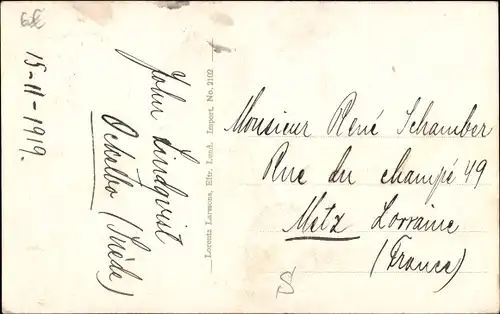 15-11-1919.
John Lindqvist
Ockelbo (Suède)
Lorentz Larssons, Eftr. Lund. Import. No. 2102
Monsieur René Schamber
Rue du champé 49
Metz Lorraine
(France)